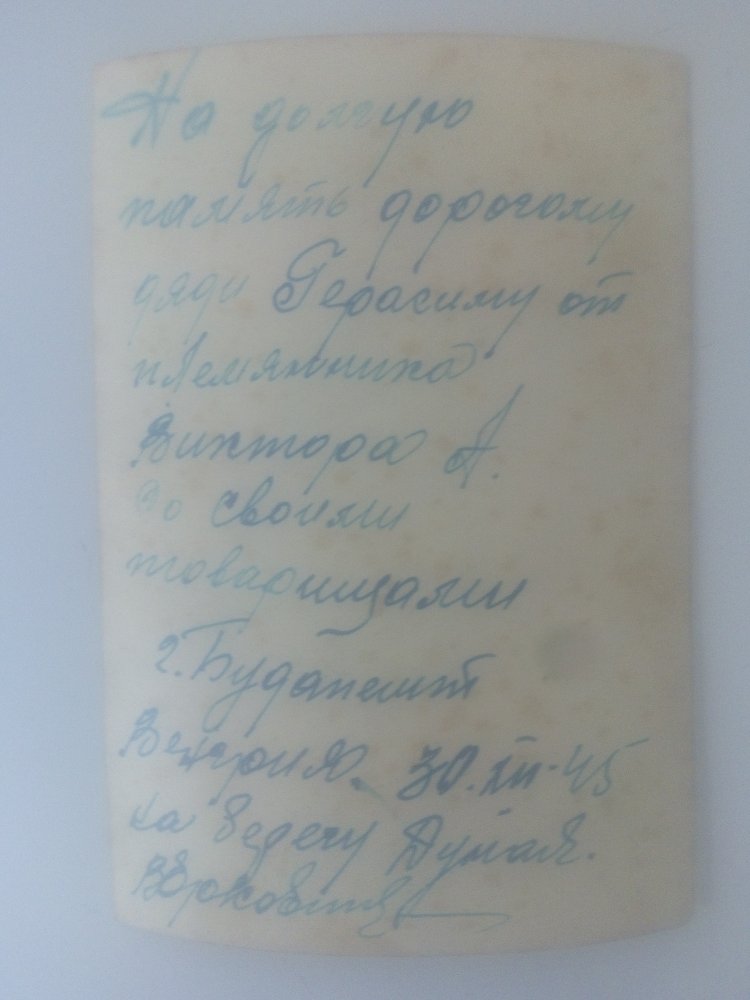 На долгую
память дорогому
дяди Герасиму от
племянника
Виктора А.
Со своими
товарищами
г. Будапешт
Венгрия. 30.XII-45
на берегу Дуная.